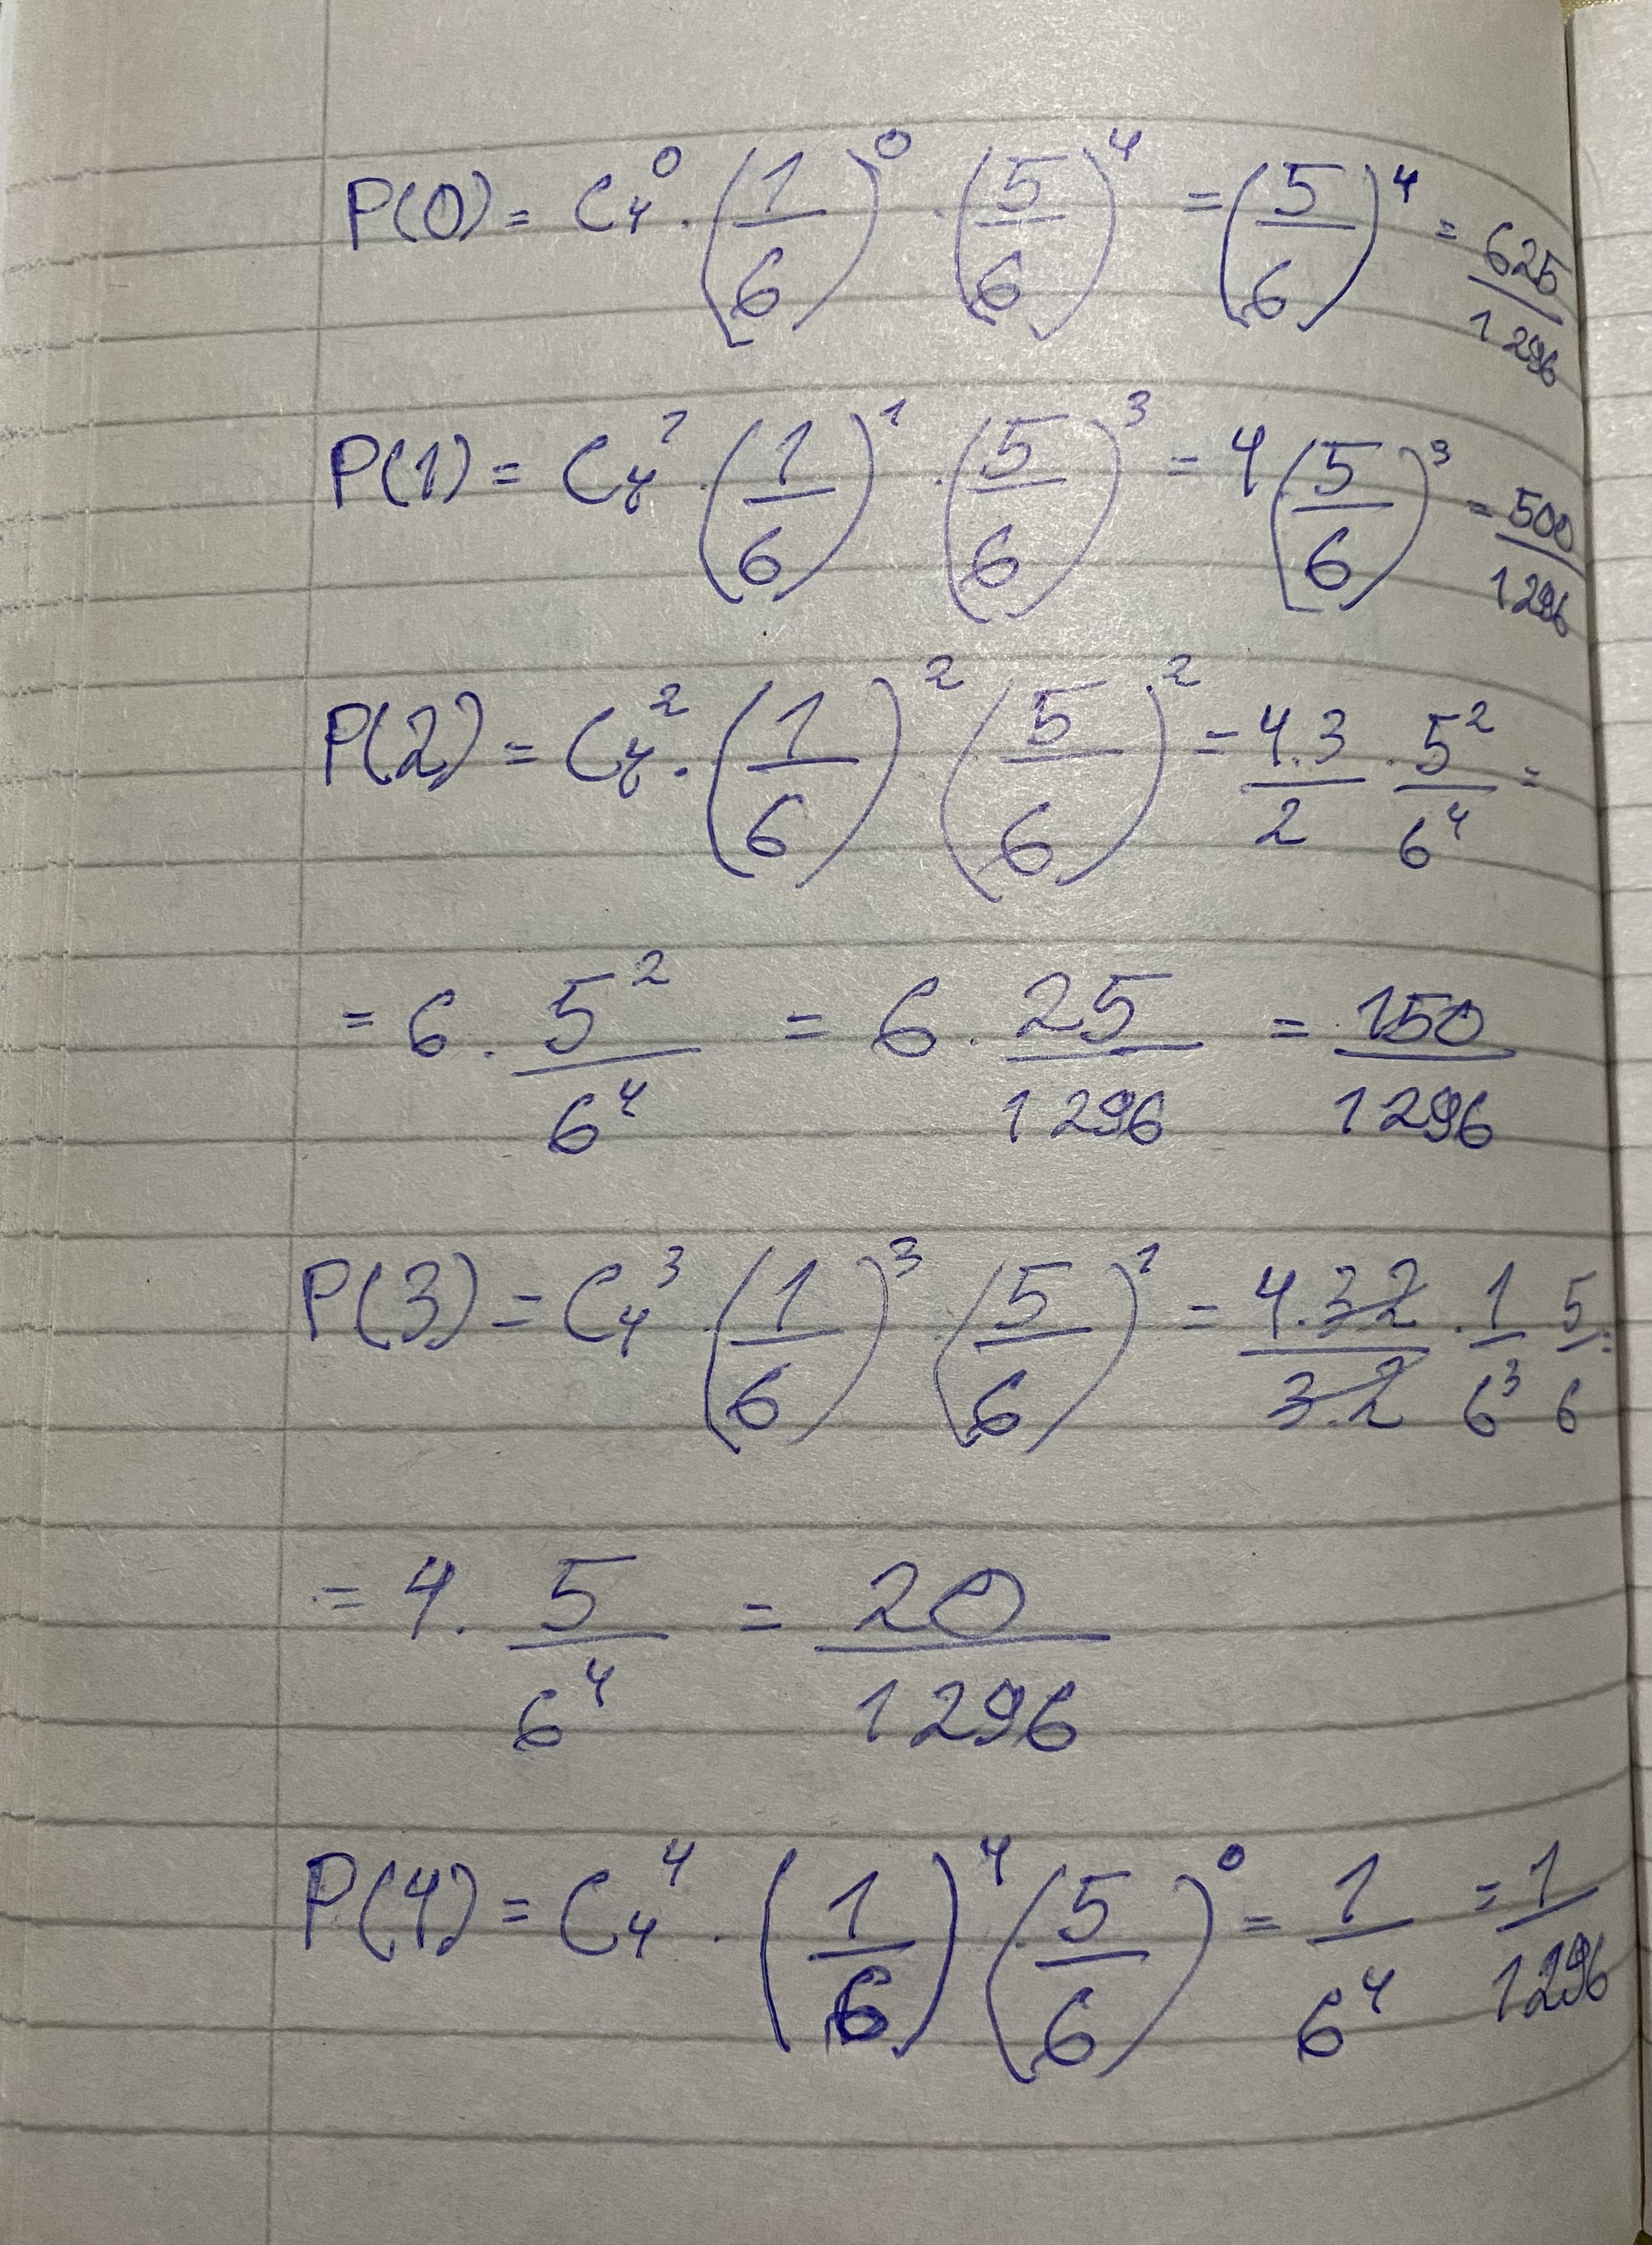 P(0) = C₄⁰ · (1/6)⁰ · (5/6)⁴ = (5/6)⁴ = 625/1296
P(1) = C₄¹ · (1/6)¹ · (5/6)³ = 4(5/6)³ = 500/1296
P(2) = C₄² · (1/6)² (5/6)² = 4.3/2 · 5²/6⁴ =
= 6 · 5²/6⁴ = 6 · 25/1296 = 150/1296
P(3) = C₄³ · (1/6)³ · (5/6)¹ = 4.3.2/3.2 · 1/6³ 5/6 =
= 4 · 5/6⁴ = 20/1296
P(4) = C₄⁴ · (1/6)⁴ (5/6)⁰ = 1/6⁴ = 1/1296